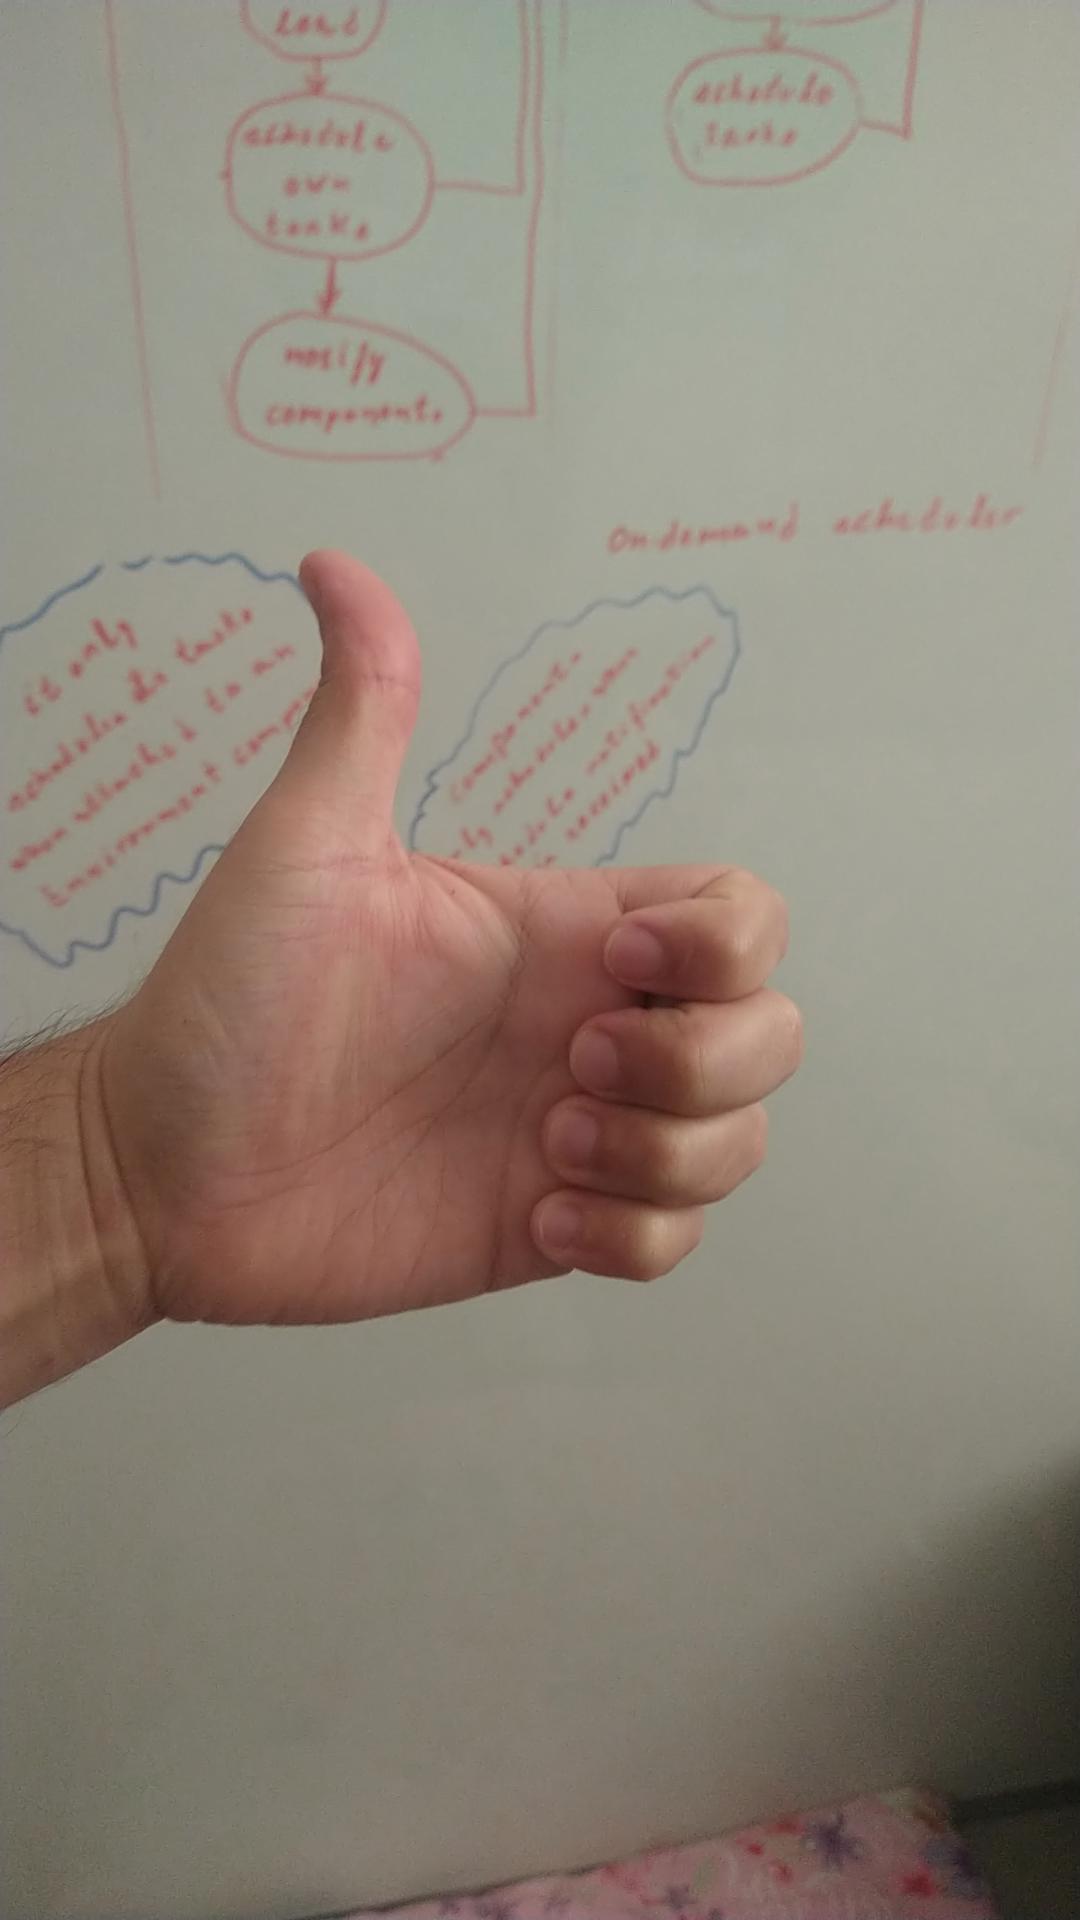 load
schedule
own
tasks
notify
components
schedule
tasks
Ondemand scheduler
it only
schedules its tasks
when attached to an
Environment
components
schedules when
notification
is received